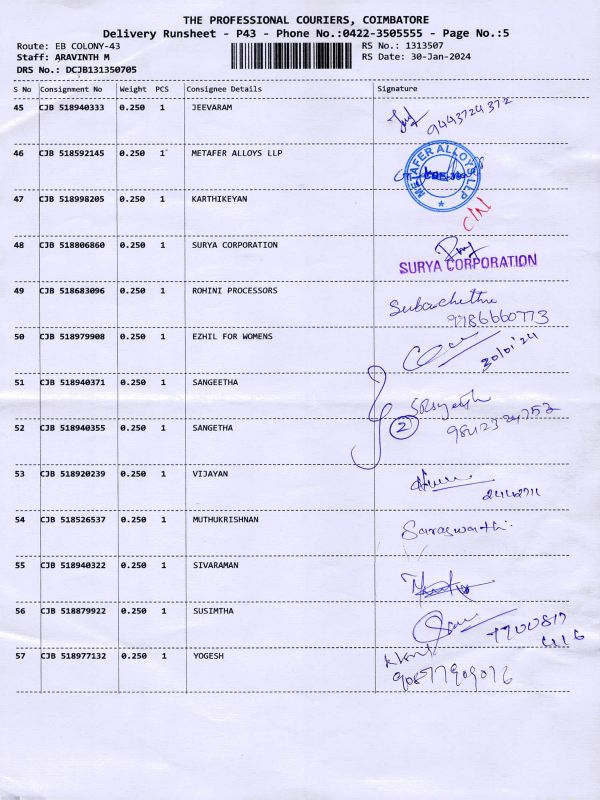 THE PROFESSIONAL COURIERS, COIMBATORE
Delivery Runsheet - P43 - Phone No.:0422-3505555 - Page No.:5
Route: EB COLONY-43 RS No.: 1313507
Staff: ARAVINTH M RS Date: 30-Jan-2024
DRS No.: DCJB131350705
S No Consignment No Weight PCS Consignee Details Signature
45 CJB 518940333 0.250 1 JEEVARAM
9443724372
46 CJB 518592145 0.250 1 METAFER ALLOYS LLP
METAFER ALLOYS LLP
47 CJB 518998205 0.250 1 KARTHIKEYAN
48 CJB 518806860 0.250 1 SURYA CORPORATION
SURYA CORPORATION
49 CJB 518683096 0.250 1 ROHINI PROCESSORS
50 CJB 518979908 0.250 1 EZHIL FOR WOMENS
30/01/24
51 CJB 518940371 0.250 1 SANGEETHA
52 CJB 518940355 0.250 1 SANGETHA
2
53 CJB 518920239 0.250 1 VIJAYAN
54 CJB 518526537 0.250 1 MUTHUKRISHNAN
Saraswathi
55 CJB 518940322 0.250 1 SIVARAMAN
56 CJB 518879922 0.250 1 SUSIMTHA
57 CJB 518977132 0.250 1 YOGESH